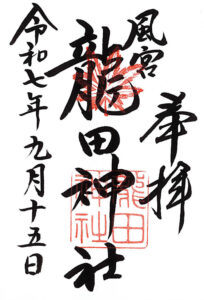 奉拝
風宮
龍田神社
龍田
神社
令和七年九月十五日